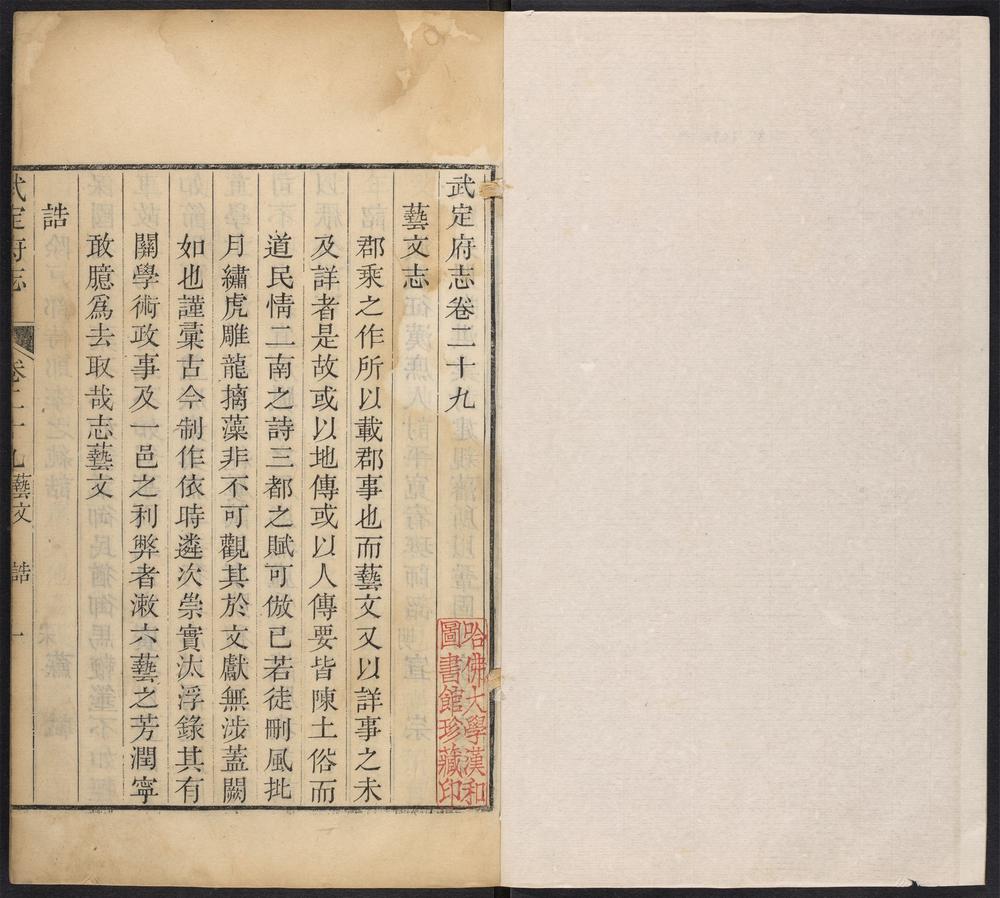 武定府志卷二十九
藝文志
郡乘之作所以載郡事也而藝文又以詳事之未
及詳者是故或以地傳或以人傳要皆陳土俗而
道民情二南之詩三都之賦可倣已若徒刪風批
月繡虎雕龍摛藻非不可觀其於文獻無涉蓋闕
如也謹彙古今制作依時遴次崇實汰浮錄其有
關學術政事及一邑之利弊者漱六藝之芳潤寧
敢臆爲去取哉志藝文
誥
武定府志
卷二十九藝文
誥
一
哈佛大學漢和
圖書館珍藏印